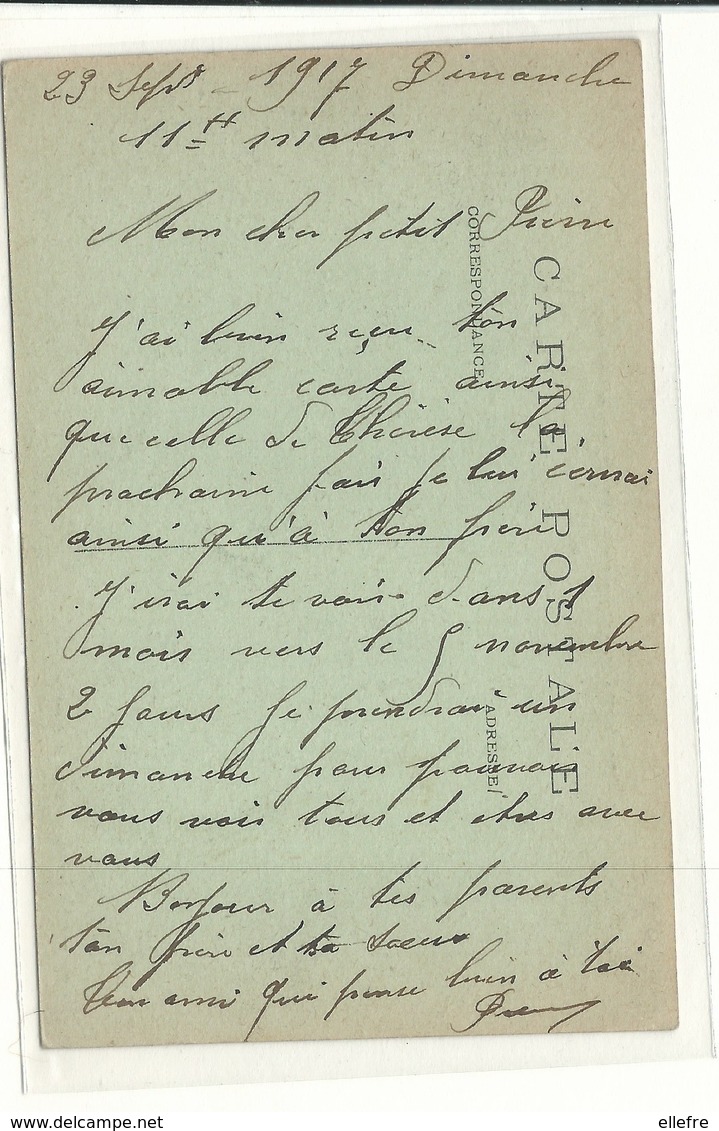 23 Sept - 1917 Dimanche
11 H matin
Mon cher petit Pierre
J'ai bien reçu ton
aimable carte ainsi
que celle de Thérèse la
prochaine fois je lui écrirai
ainsi qu'à ton frère
J'irai te voir dans 1
mois vers le 5 novembre
2 jours je prendrai un
dimanche pour pouvoir
vous voir tous et être avec
vous
Bonjour à tes parents
ton frère et ta soeur
Ton ami qui pense bien à toi
CARTE POSTALE
CORRESPONDANCE
ADRESSE
ellefre